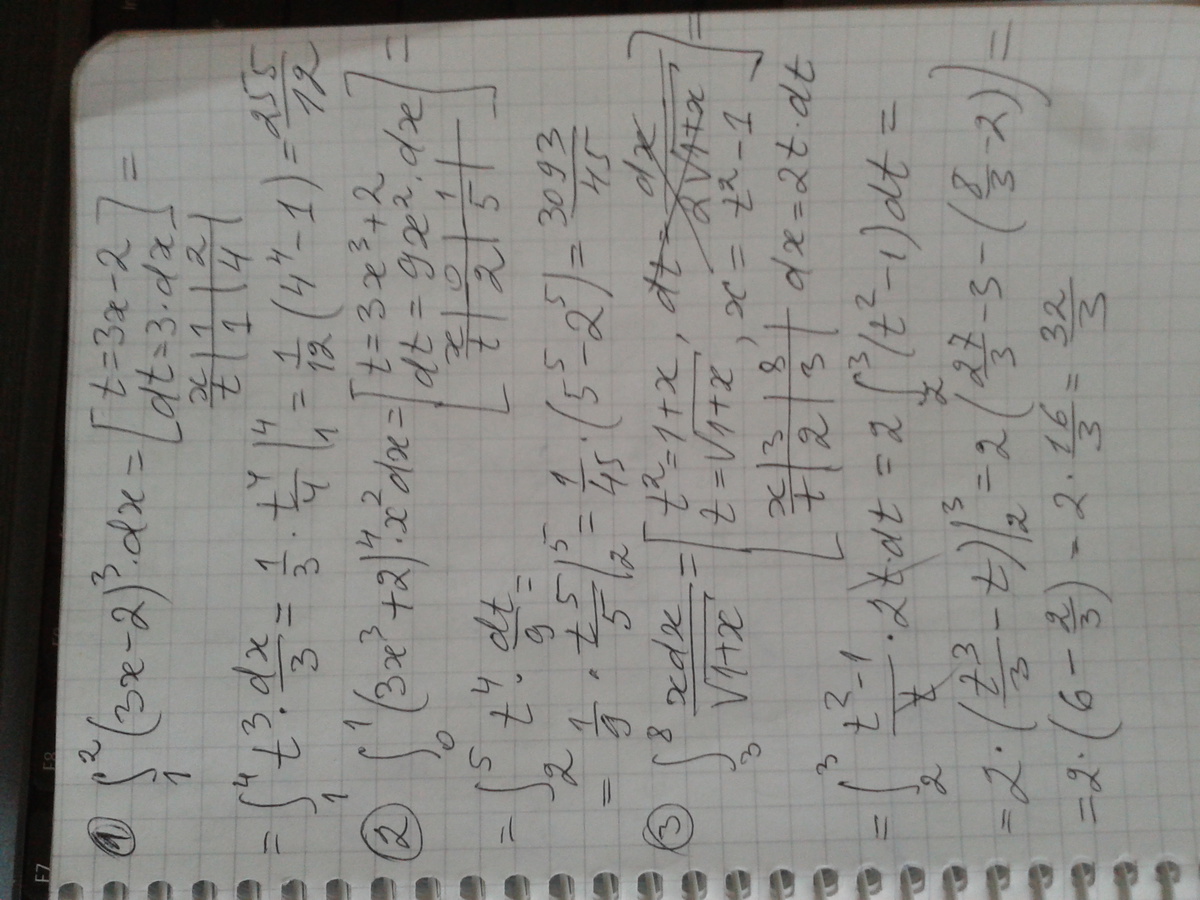 ① ∫₁² (3x-2)³·dx = [t=3x-2
dt=3·dx] =
x | 1 | 2
t | 1 | 4
= ∫₁⁴ t³·dx/3 = 1/3 · t⁴/4 |₁⁴ = 1/12 (4⁴-1) = 255/12
② ∫₀¹ (3x³+2)⁴·x²dx = [t=3x³+2
dt=9x²·dx] =
x | 0 | 1
t | 2 | 5
= ∫₂⁵ t⁴·dt/9 =
= 1/9 · t⁵/5 |₂⁵ = 1/45·(5⁵-2⁵) = 3093/45
③ ∫₃⁸ xdx/√(1+x) = [t²=1+x, dt=dx/2√(1+x)
t=√(1+x), x=t²-1] =
x | 3 | 8
t | 2 | 3
dx=2t·dt
= ∫₂³ (t²-1)/t · 2t·dt = 2∫₂³(t²-1)dt =
= 2·(t³/3 - t)|₂³ = 2(27/3 - 3 - (8/3 - 2)) =
= 2·(6 - 2/3) = 2·16/3 = 32/3
F7
F8